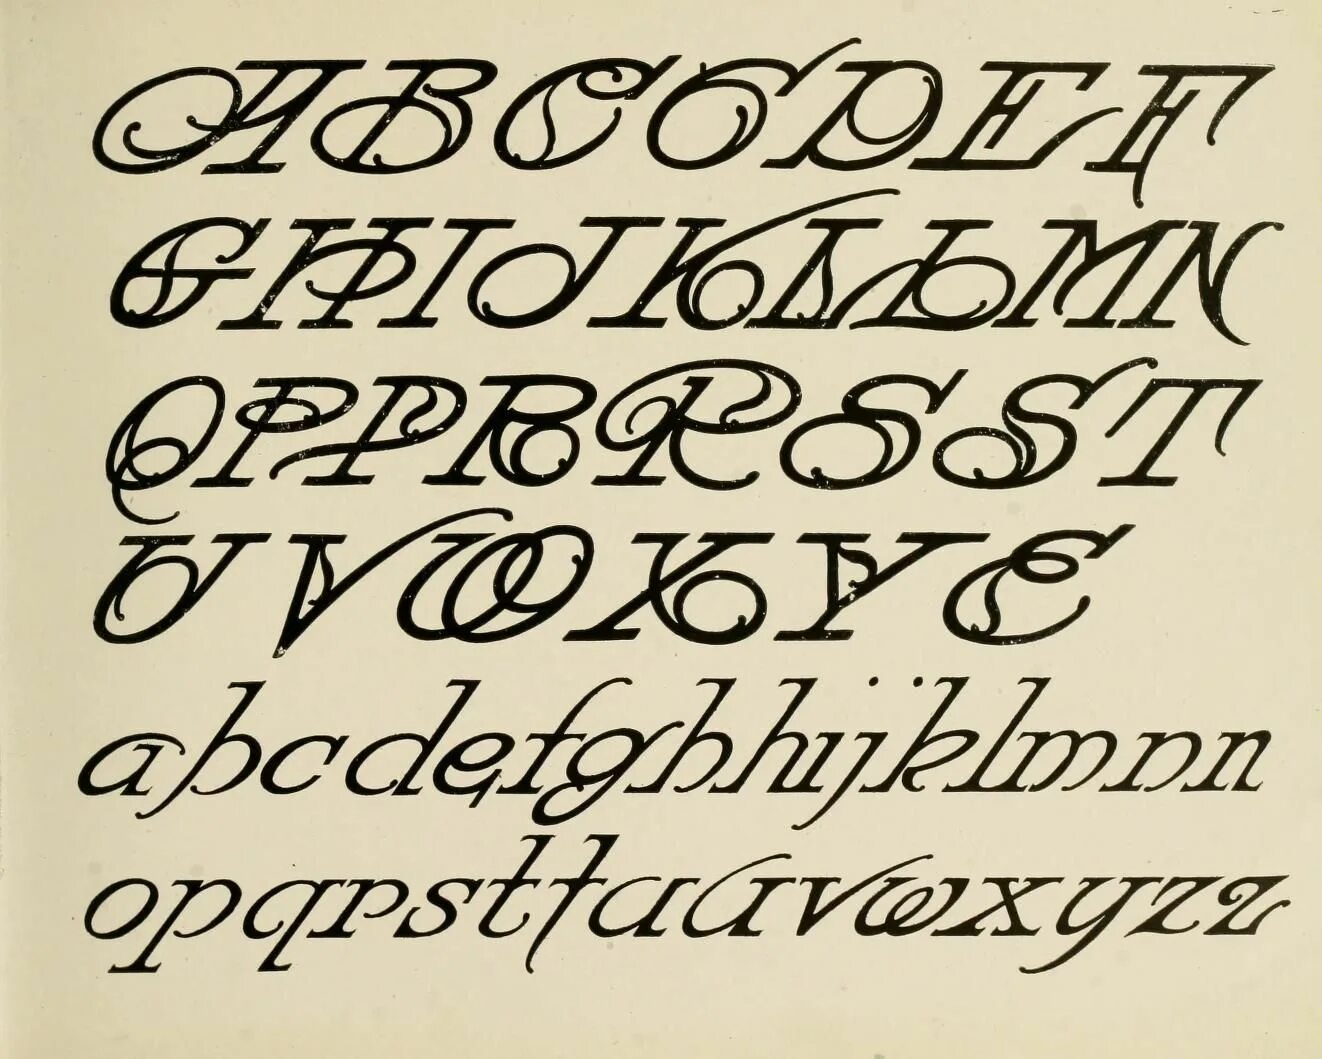 ABCCDEF
GHIJKLLMN
QPPRRSST
UVWXYE
abcdefghhijklmnn
opqrsttuuvwxyzz